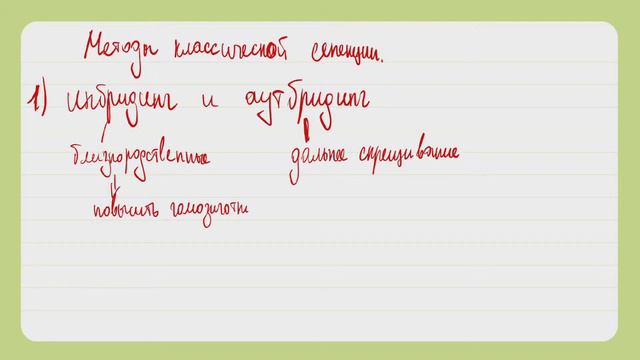 Методы классической селекции.
1) инбридинг и аутбридинг
близкородственные дальнее скрещивание
повысить гомозиготн